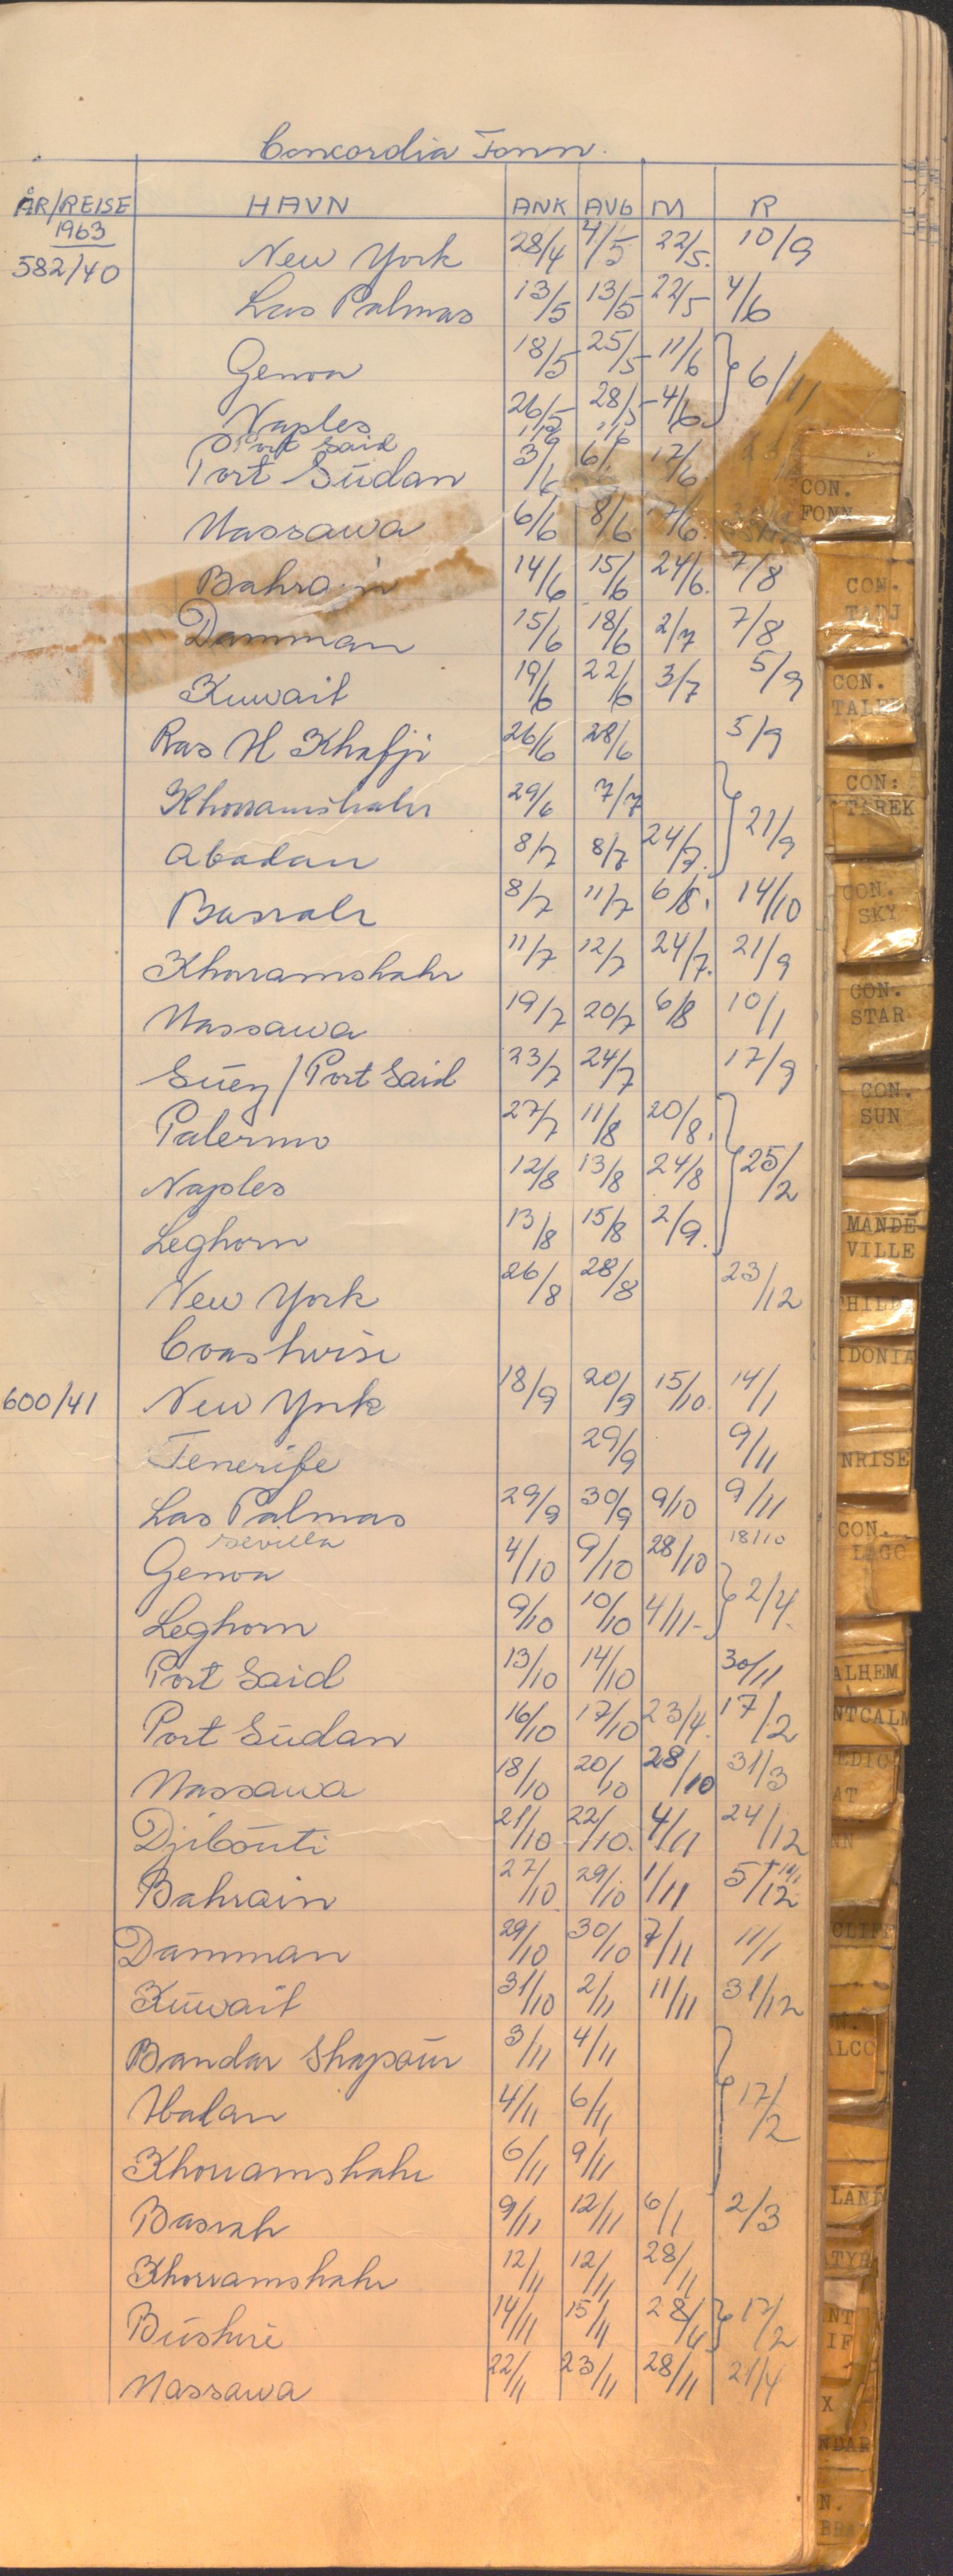 Concordia Fonn.
ÅR/REISE HAVN ANK AVG M R
1963
582/40 New York 28/4 4/5 22/5. 10/9
Las Palmas 13/5 13/5 22/5 4/6
Genoa 18/5 25/5 11/6 } 6/11
Naples 26/5 28/5 4/6
Port Said 1/6 1/6
Port Sudan 3/6 6/ 17/6
Massawa 6/6 8/6 7/6.
Bahrain 14/6 15/6 24/6. 7/8
Damman 15/6 18/6 2/7 7/8
Kuwait 19/6 22/6 3/7 5/9
Ras Al Khafji 26/6 28/6 5/9
Khorramshahr 29/6 7/7 } 21/9
Abadan 8/7 8/7 24/7.
Basrah 8/7 11/7 6/8. 14/10
Khorramshahr 11/7 12/7 24/7. 21/9
Massawa 19/7 20/7 6/8 10/1
Suez/Port Said 23/7 24/7 17/9
Palermo 27/7 11/8 20/8. } 25/2
Naples 12/8 13/8 24/8
Leghorn 13/8 15/8 2/9.
New York 26/8 28/8 23/12
Coastwise
600/41 New York 18/9 20/9 15/10. 14/1
Tenerife 29/9 9/11
Las Palmas 29/9 30/9 9/10 9/11
Sevilla 18/10
Genoa 4/10 9/10 28/10 } 2/4.
Leghorn 9/10 10/10 4/11-
Port Said 13/10 14/10 30/11
Port Sudan 16/10 17/10 23/4. 17/2
Massawa 18/10 20/10 28/10 31/3
Djibouti 21/10 22/10. 4/11 24/12
Bahrain 27/10 29/10 1/11 5/12
Damman 29/10 30/10 7/11 11/1
Kuwait 31/10 2/11 11/11 31/12
Bandar Shapour 3/11 4/11 } 17/2
Abadan 4/11 6/11
Khorramshahr 6/11 9/11
Basrah 9/11 12/11 6/1 2/3
Khorramshahr 12/11 12/11 28/11
Bushire 14/11 15/11 28/11 } 17/2
Massawa 22/11 23/11 28/11 21/4
CON.
FONN
CON.
TADJ
CON.
CON:
TAREK
CON.
SKY
CON.
STAR
CON.
SUN
MANDE-
VILLE
HILL
IDONIA
NRISE
CON.
LAGO
ALHEM
NTCALM
EDIC
AT
NN
CLIFF
N.
ALCO
LAND
NT
IF
X
NDAR
N.